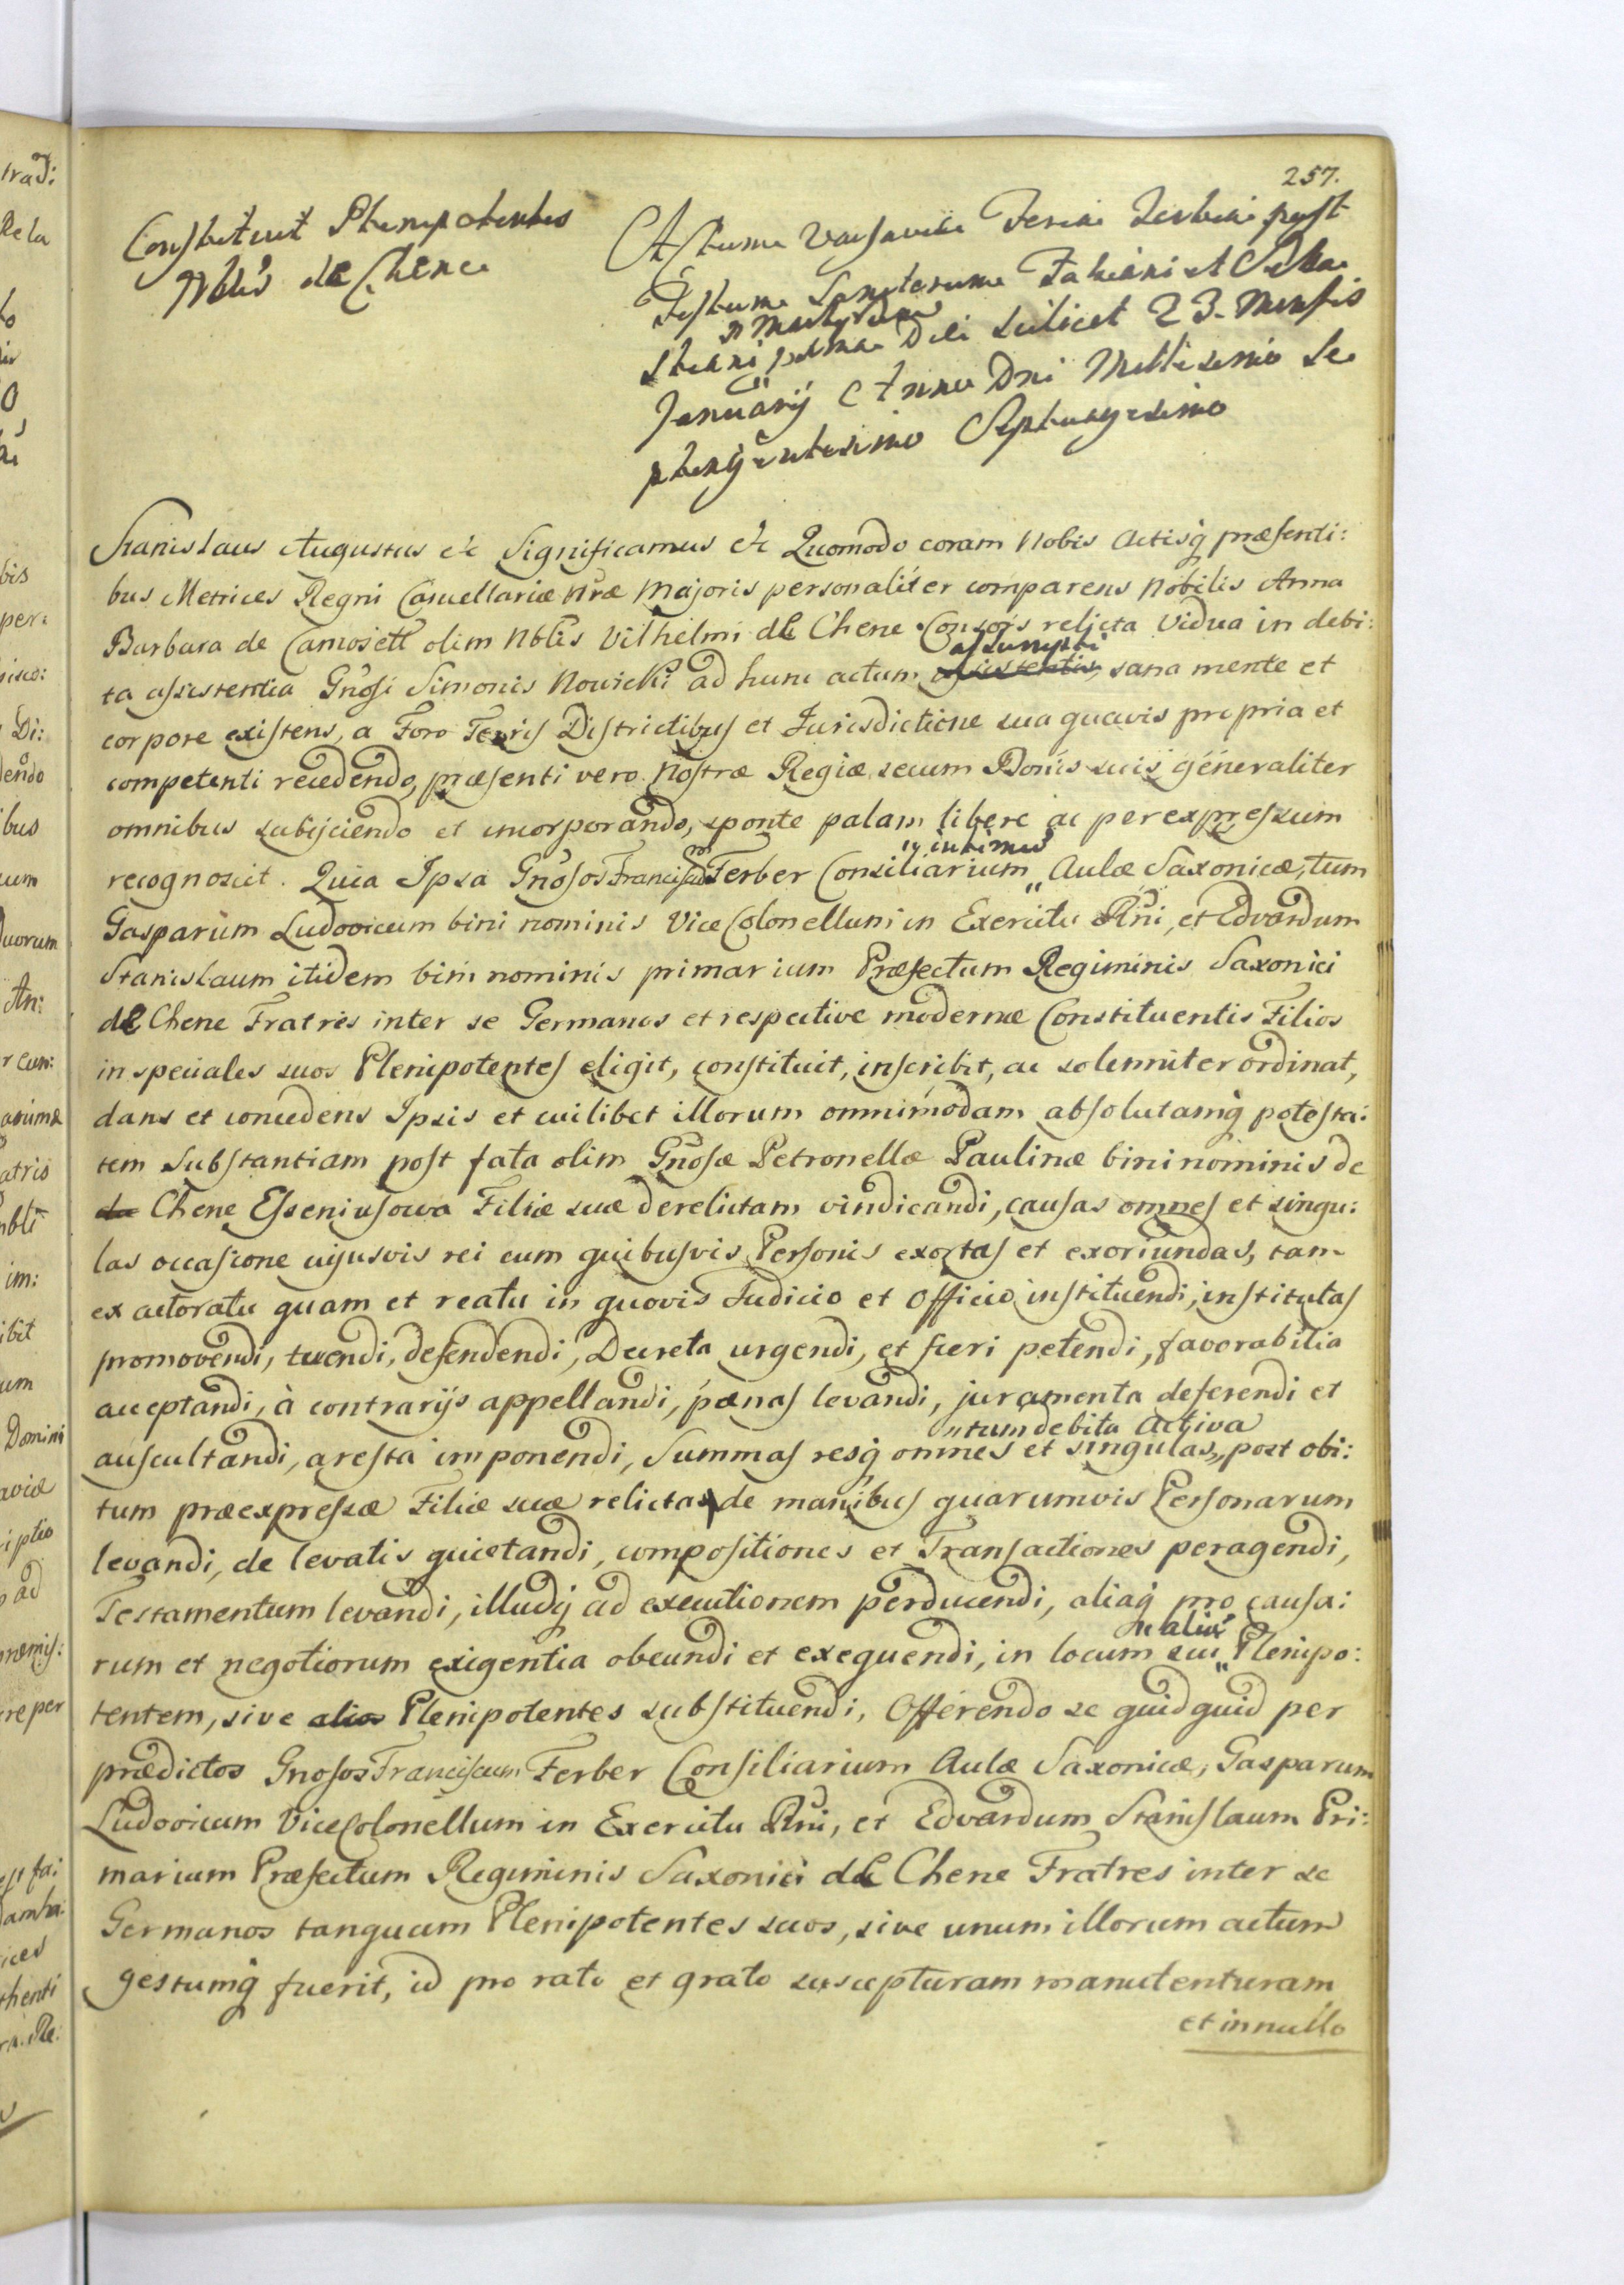 257.
Constituit Plenipotentes
Nblis de Chene
Actum Varsaviæ Feria Tertia post
Festum Sanctorum Fabiani et Seba
stiani Martyrum prima Die scilicet 23. Mensis
Januarij Anno Dni Millesimo Se
ptingentesimo Septuagesimo
Stanislaus Augustus etc Significamus etc Quomodo coram Nobis Actisq præsenti:
bus Metrices Regni Cancellariæ Nræ Majoris personaliter comparens Nobilis Anna
Barbara de Camosett olim Nblis Vilhelmi de Chene Consors relicta Vidua in debi:
ta assistentia Gnosi Simonis Nowicki ad hunc actum assumpti sana mente et
corpore existens, a Foro Terris Districtibus et Jurisdictione sua quavis propria et
competenti recedendo, præsenti vero Nostræ Regiæ secum Bonis suis generaliter
omnibus subijciendo et incorporando, sponte palam libere ac per expressum
recognoscit. Quia Ipsa Gnosos Franciscum Ferber Consiliarium intimum Aulæ Saxonicæ, tum
Gasparum Ludovicum bini nominis Vice Colonellum in Exercitu Rni, et Edvardum
Stanislaum itidem bini nominis primarium Præfectum Regiminis Saxonici
de Chene Fratres inter se Germanos et respective modernæ Constituentis Filios
in speciales suos Plenipotentes eligit, constituit, inscribit, ac solenniter ordinat,
dans et concedens Ipsis et cuilibet illorum omnimodam absolutamq potesta:
tem Substantiam post fata olim Gnosæ Petronellæ Paulinæ bini nominis de
Chene Esseniusowa Filiæ suæ derelictam vindicandi, causas omnes et singu:
las occasione cujusvis rei cum quibusvis Personis exortas et exoriundas, tam
ex actoratu quam et reatu in quovis Judicio et Officio instituendi, institutas
promovendi, tuendi, defendendi, Decreta urgendi, et fieri petendi, favorabilia
acceptandi, à contrarijs appellandi, pænas levandi, juramenta deferendi et
auscultandi, aresta imponendi, Summas resq omnes et singulas, tum debita activa post obi:
tum præexpressæ Filiæ suæ relictas de manibus quarumvis Personarum
levandi, de levatis quietandi, compositiones et Transactiones peragendi,
Testamentum levandi, illudq ad executionem perducendi, aliaq pro causa:
rum et negotiorum exigentia obeundi et exequendi, in locum sui alium Plenipo:
tentem, sive alios Plenipotentes substituendi, Offerendo se quidquid per
prædictos Gnosos Franciscum Ferber Consiliarium Aulæ Saxonicæ, Gasparum
Ludovicum Vice Colonellum in Exercitu Rni, et Edvardum Stanislaum Pri:
marium Præfectum Regiminis Saxonici de Chene Fratres inter se
Germanos tanquam Plenipotentes suos, sive unum illorum actum
gestumq fuerit, id pro rato et grato suscepturam manutenturam
et in nullo